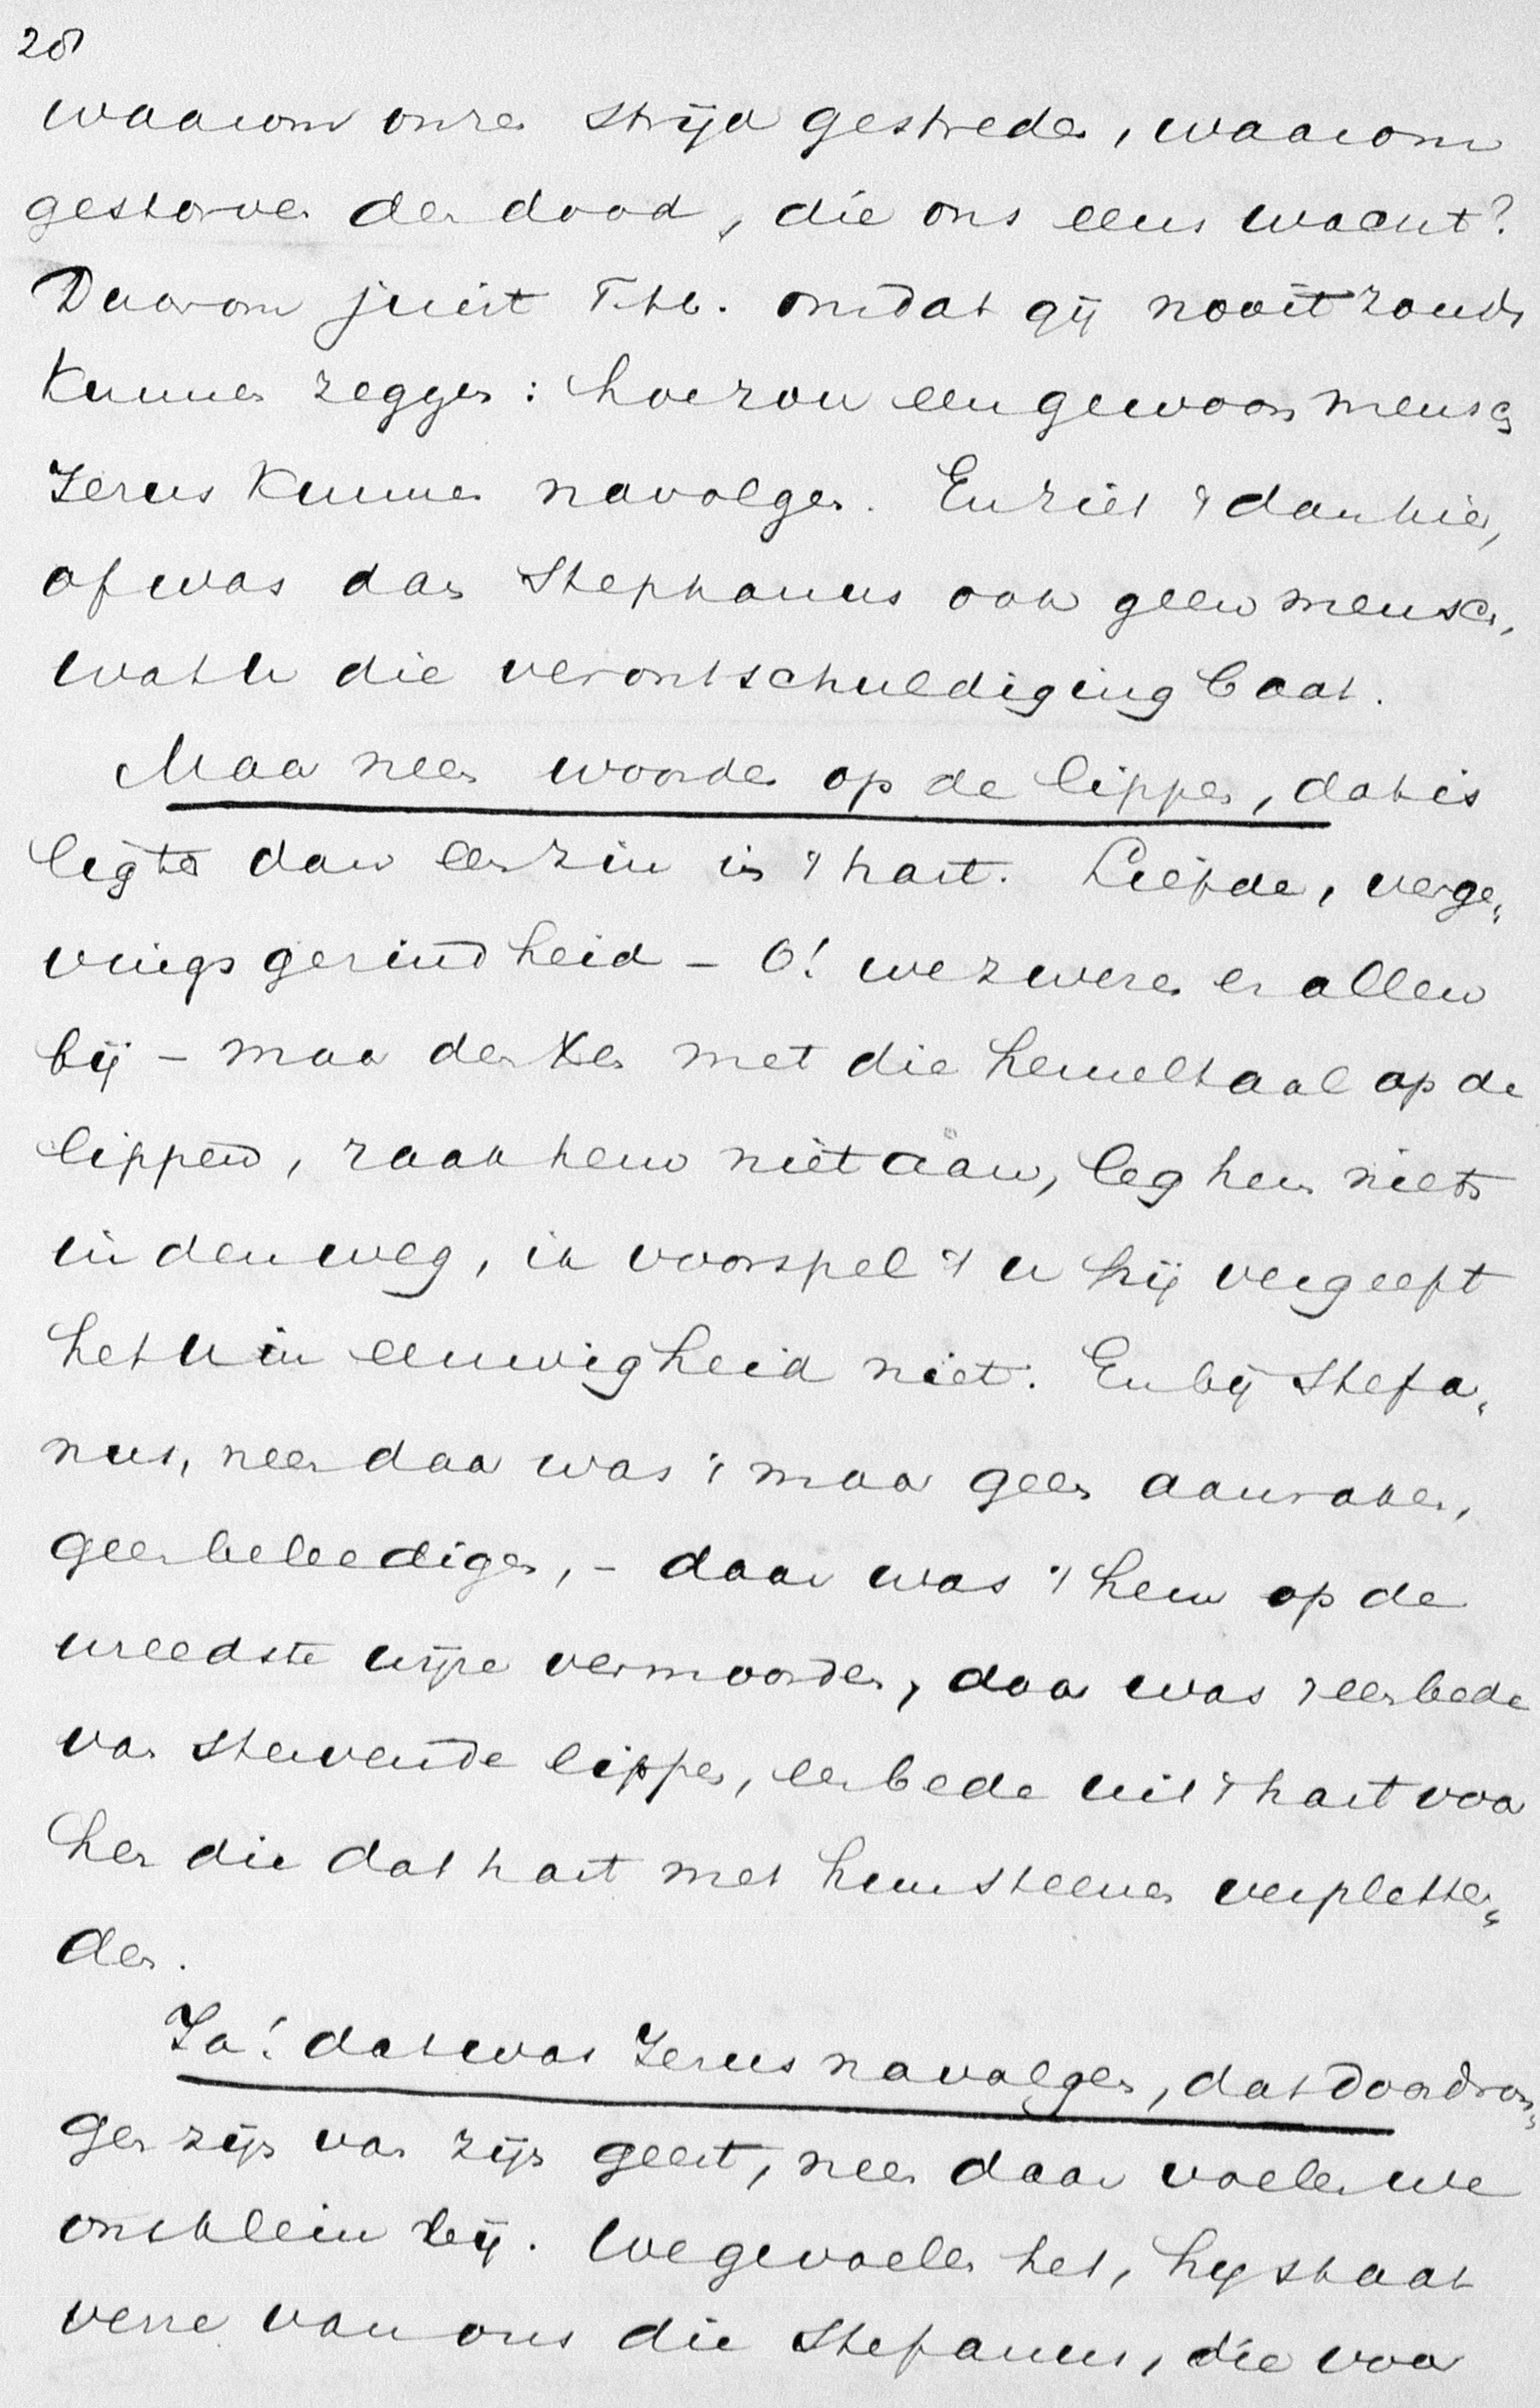 28
waarom onzen strijd gestreden, waarom
gestorven den dood, die ons eens wacht?
Daarom juist T.h. omdat gij nooit zoudt
kunnen zeggen: hoe zou een gewoon mensch
Jezus kunnen navolgen. En ziet 't dan hier,
of was dan Stephanus ook geen mensch,
wat u die verontschuldiging baat.
Maar neen woorden op de lippen, dat is
ligter dan een zin in 't hart. Liefde, verge„
vingsgezindheid – O! we zweren er allen
bij – maar den man met die hemeltaal op de
lippen, raak hem niet aan, leg hem niets
in den weg, ik voorspel 't u hij vergeeft
het u in eeuwigheid niet. En bij Stefa„
nus, neen daar was 't maar geen aanraken,
geen beleedigen, – daar was 't hem op de
wreedste wijze vermoorden, daar was 't een bede
van stervende lippen, een bede uit 't hart voor
hen die dat hart met hun steenen verpletter„
den.
Ja! dat was Jezus navolgen, dat doordron„
gen zijn van zijn geest, neen daar voelen we
ons klein bij. We gevoelen het, hij staat
verre van ons die Stefanus, die voor